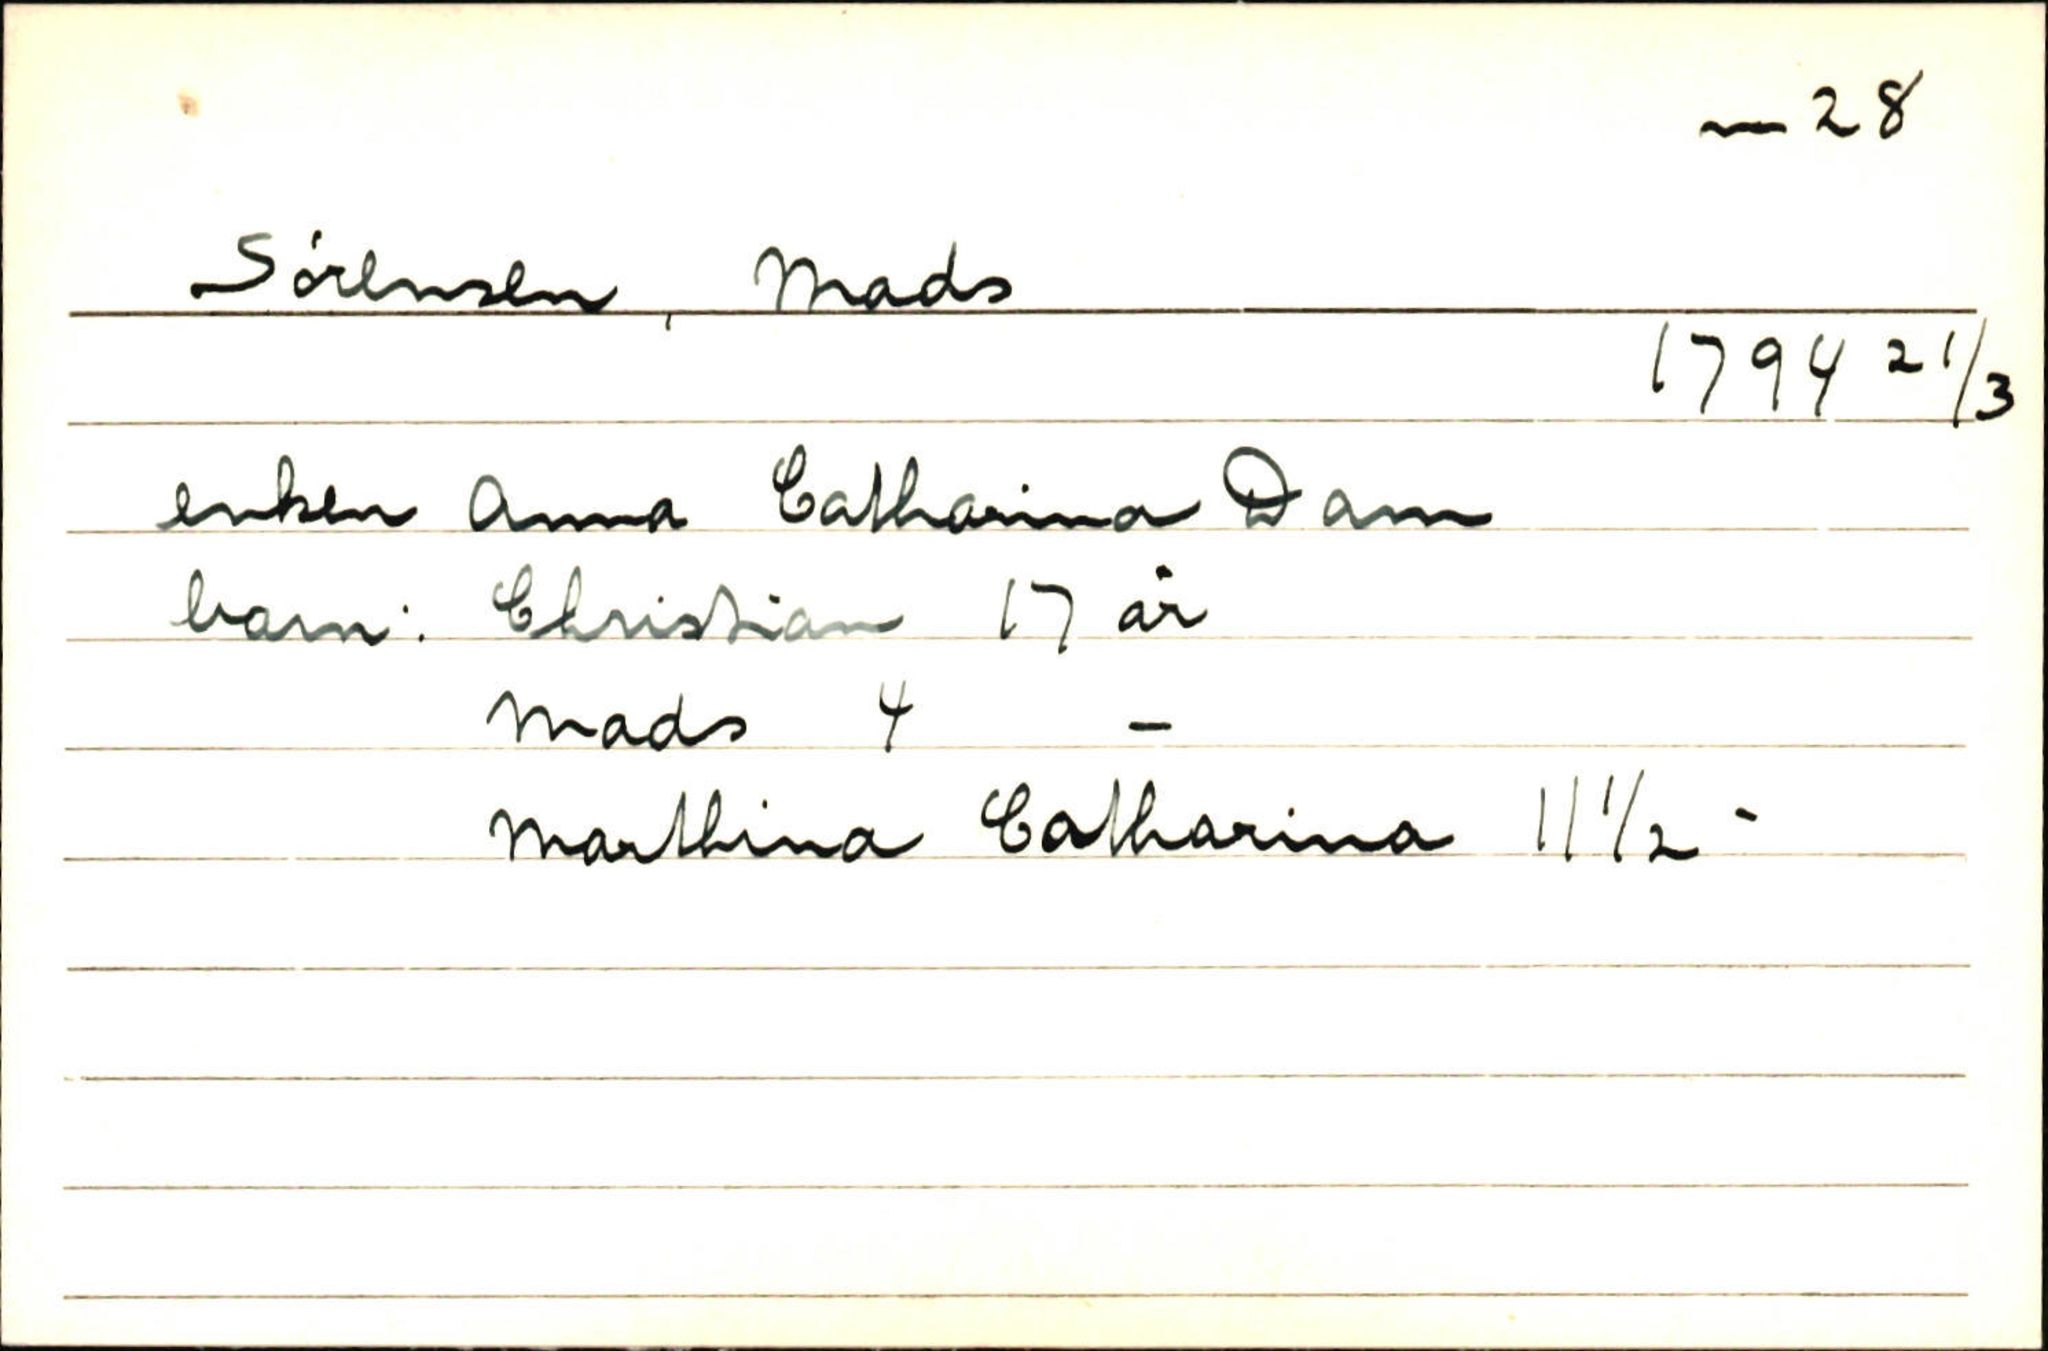 — 28
Sörensen, Mads
1794 21/3
enken Anna Catharina Dam
barn: Christian 17 år
Mads 4 -
Marthina Catharina 11 1/2 -